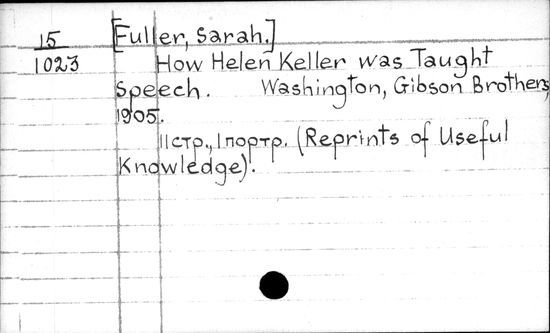 15
1023
[Fuller, Sarah.]
How Helen Keller was Taught
Speech. Washington, Gibson Brothers,
1905.
11стр., 1портр. (Reprints of Useful
Knowledge).